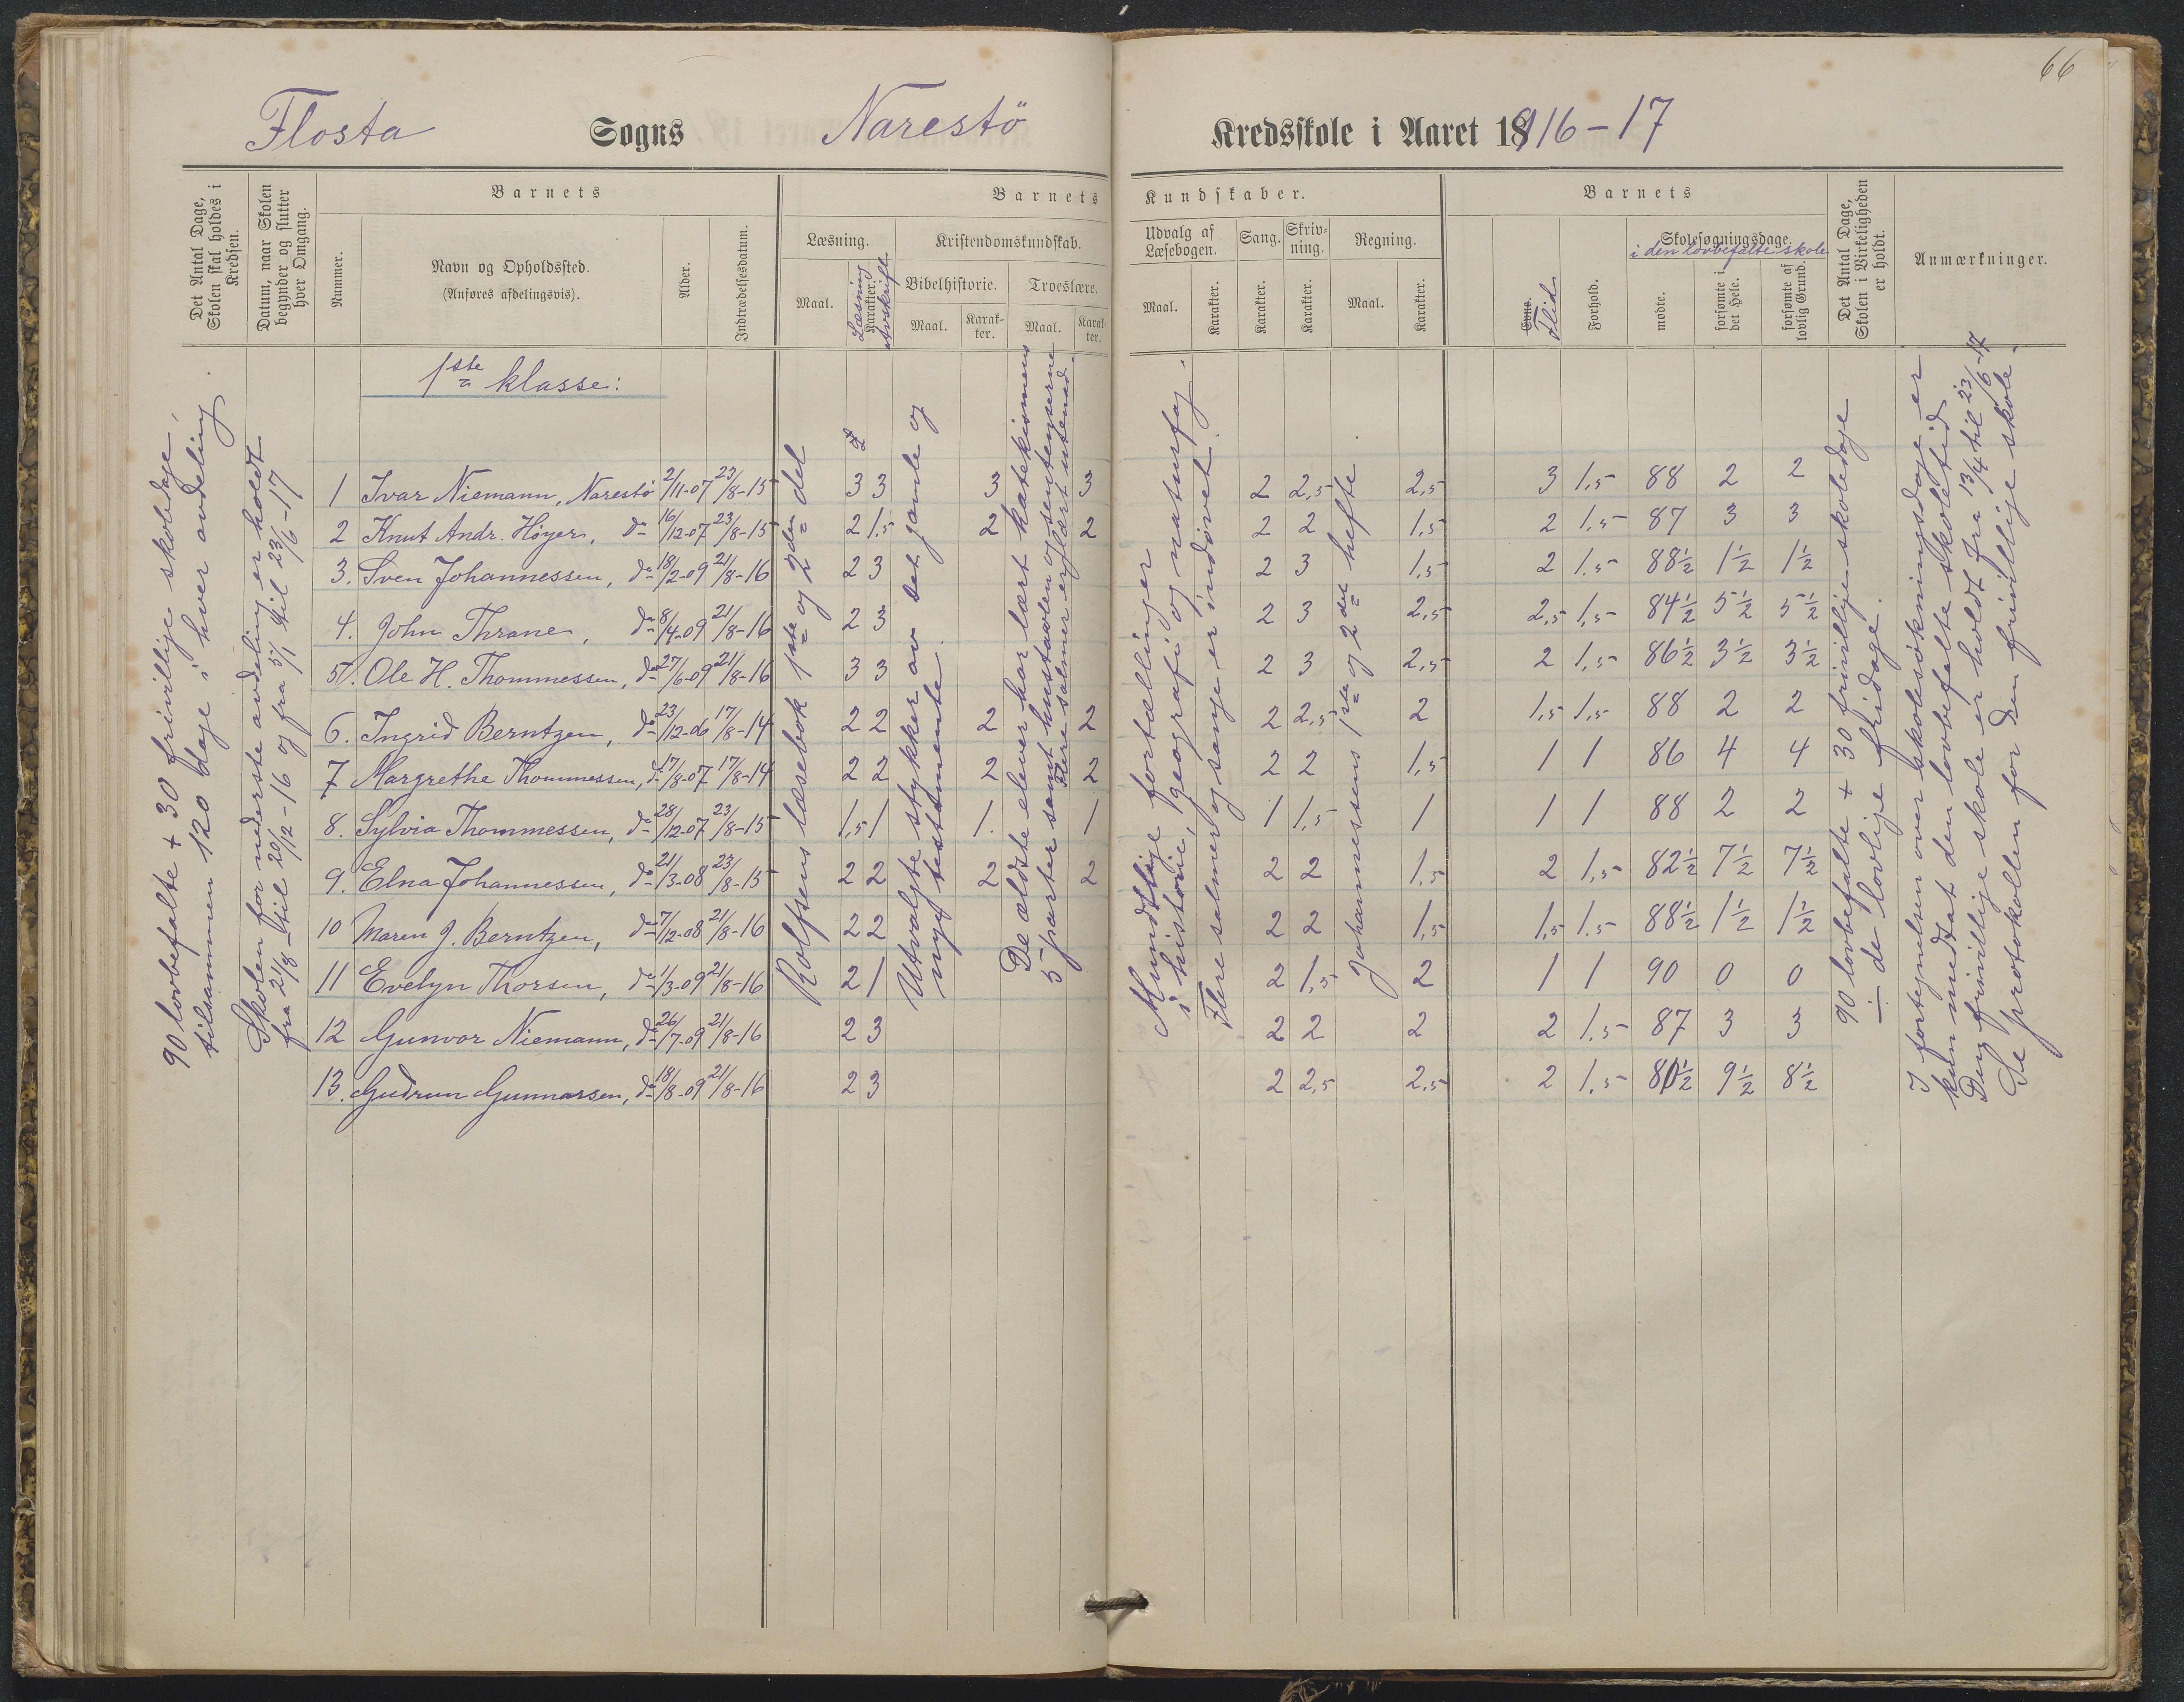 66
Flosta Sogns Narestö Kredsskole i Aaret 1916-17
Det Antal Dage, Skolen skal holdes i Kredsen.
Datum, naar Skolen begynder og slutter hver Omgang.
Barnets
Nummer.
Navn og Opholdssted.
(Anføres afdelingsvis).
Alder.
Indtrædelsesdatum.
Barnets Kundskaber.
Læsning.
Maal.
Karakter.
Læsning
Avskrift
Kristendomskundskab.
Bibelhistorie.
Maal.
Karakter.
Troeslære.
Maal.
Karakter.
Udvalg af Læsebogen.
Maal.
Karakter.
Sang.
Karakter.
Skrivning.
Karakter.
Regning.
Maal.
Karakter.
Barnets
Evne.
Flid
Forhold.
Skolesøgningsdage.
i den lovbefalte skole
mødte.
forsømte i det Hele.
forsømte af lovlig Grund.
Det Antal Dage, Skolen i Virkeligheden er holdt.
Anmærkninger.
1ste klasse:
1 Ivar Niemann, Narestö 2/11-07 23/8-15 3 3 3 3 2 2,5 2,5 3 1,5 88 2 2
2 Knut Andr. Höyer, do 16/12-07 23/8-15 2 1,5 2 2 2 2 1,5 2 1,5 87 3 3
3. Sven Johannessen, do 18/2-09 21/8-16 2 3 2 3 1,5 2 1,5 88½ 1½ 1½
4. John Thrane, do 8/4-09 21/8-16 2 3 2 3 2,5 2,5 1,5 84½ 5½ 5½
5. Ole H. Thommessen, do 27/6-09 21/8-16 3 3 2 3 2,5 2 1,5 86½ 3½ 3½
6. Ingrid Berntzen, do 23/12-06 17/8-14 2 2 2 2 2 2,5 2 1,5 1,5 88 2 2
7 Margrethe Thommessen, do 17/8-07 17/8-14 2 2 2 2 2 2 1,5 1 1 86 4 4
8. Sylvia Thommessen, do 28/12-07 23/8-15 1,5 1 1. 1 1 1,5 1 1 1 88 2 2
9. Elna Johannessen, do 21/3-08 23/8-15 2 2 2 2 2 2 1,5 2 1,5 82½ 7½ 7½
10 Maren J. Berntzen, do 7/12-08 21/8-16 2 2 2 2 1,5 1,5 1,5 88½ 1½ 1½
11 Evelyn Thorsen, do 1/3-09 21/8-16 2 1 2 1,5 2 1 1 90 0 0
12 Gunvor Niemann, do 26/7-09 21/8-16 2 3 2 2 2 2 1,5 87 3 3
13. Gudrun Gunnarsen, do 18/8-09 21/8-16 2 3 2 2,5 2,5 2 1,5 80½ 9½ 8½
90 lovbefalte + 30 frivillige skoledage,
tilsammen 120 dage i hver avdeling.
Skolen for nederste avdeling er holdt
fra 21/8 til 20/12-16 og fra 5/1 til 23/6-17
Rolfsens læsebok 1ste og 2den del
Utvalgte stykker av det gamle og
nye testamente.
De ældste elever har lært katekismens
5 parter samt hustavlen og sentenserne
Flere salmer er lært utenad.
Mundtlige fortællinger
i historie, geografi og naturfag.
Flere salmer og sange er indövet.
Johannessens 1ste og 2det hefte
90 lovbefalte + 30 frivillige skoledage
÷ de lovlige fridage.
I fortegnelsen over skolesökningsdage er
kun medtat den lovbefalte skoletid
Den frivillige skole er holdt fra 13/4 til 23/6-17
Se protokollen for den frivillige skole.